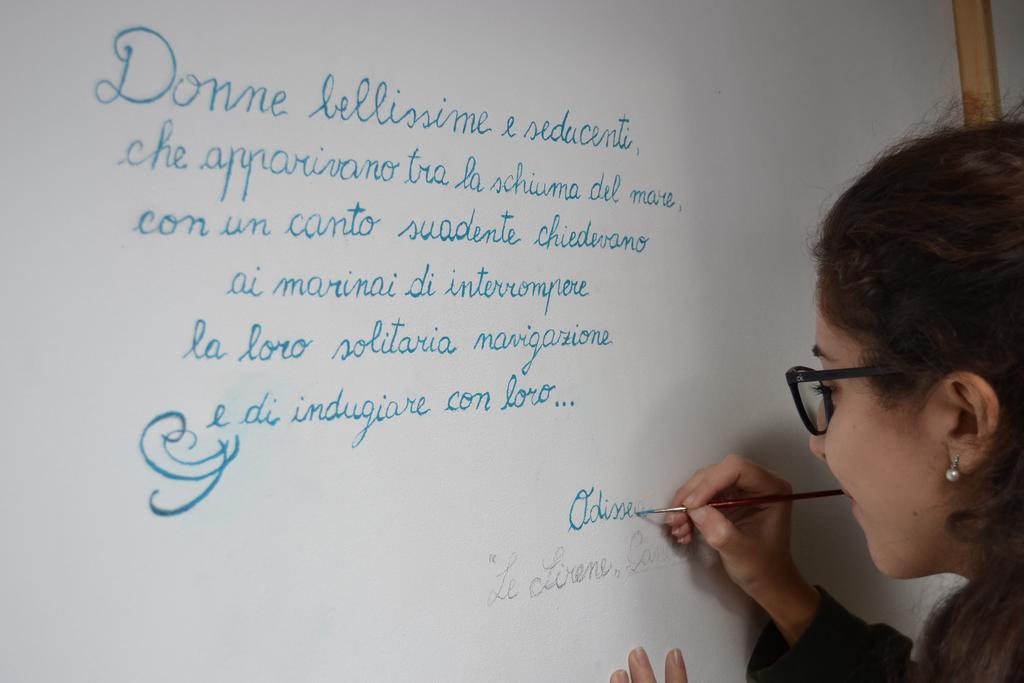 Donne bellissime e seducenti,
che apparivano tra la schiuma del mare,
con un canto suadente chiedevano
ai marinai di interrompere
la loro solitaria navigazione
e di indugiare con loro...
Odissea
"Le Sirene„